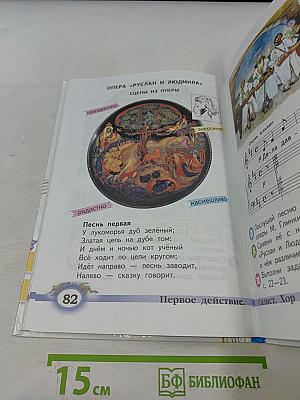 ОПЕРА «РУСЛАН И ЛЮДМИЛА»
СЦЕНЫ ИЗ ОПЕРЫ
празднично
радостно
насмешливо
Песнь первая
У лукоморья дуб зелёный;
Златая цепь на дубе том;
И днём и ночью кот учёный
Всё ходит по цепи кругом;
Идёт направо — песнь заводит,
Налево — сказку говорит.
82
Первое действие.
Хор
Послушай песню
оперы М. Глинки
Сравни её с
«Руслан и Людми
в чём различие
Выполни зада
с. 22—23.
15 см
БФ БИБЛИОФАН